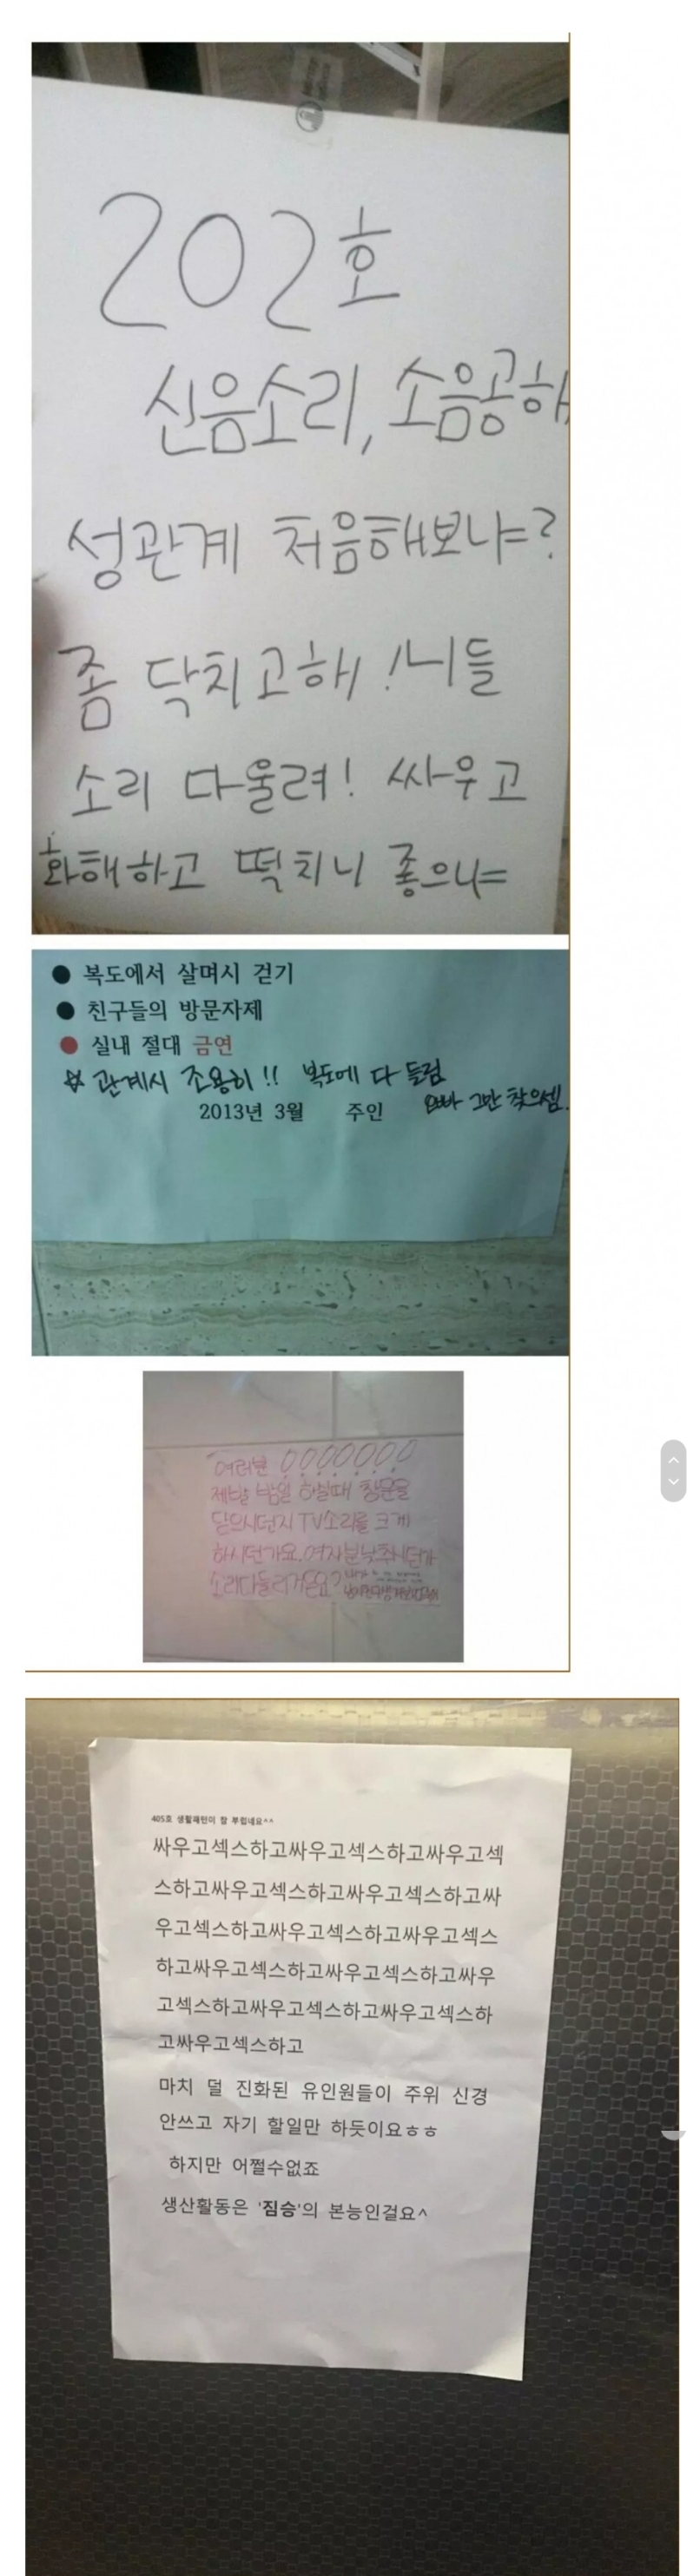 202호
신음소리, 소음공해
성관계 처음해보냐=?
좀 닥치고해! 니들
소리 다울려! 싸우고
화해하고 떡치니 좋으냐=
● 복도에서 살며시 걷기
● 친구들의 방문자제
● 실내 절대 금연
☆ 관계시 조용히!! 복도에 다 들림
2013년 3월 주인 오빠 그만 찾으셈.
여러분
제발 밤일 하실때 창문을
닫으시던지 TV소리를 크게
하시던가요. 여자분 낮추시던가
소리다들리거든요?
405호 생활패턴이 참 부럽네요^^
싸우고섹스하고싸우고섹스하고싸우고섹
스하고싸우고섹스하고싸우고섹스하고싸
우고섹스하고싸우고섹스하고싸우고섹스
하고싸우고섹스하고싸우고섹스하고싸우
고섹스하고싸우고섹스하고싸우고섹스하
고싸우고섹스하고
마치 덜 진화된 유인원들이 주위 신경
안쓰고 자기 할일만 하듯이요ㅎㅎ
하지만 어쩔수없죠
생산활동은 '짐승'의 본능인걸요^